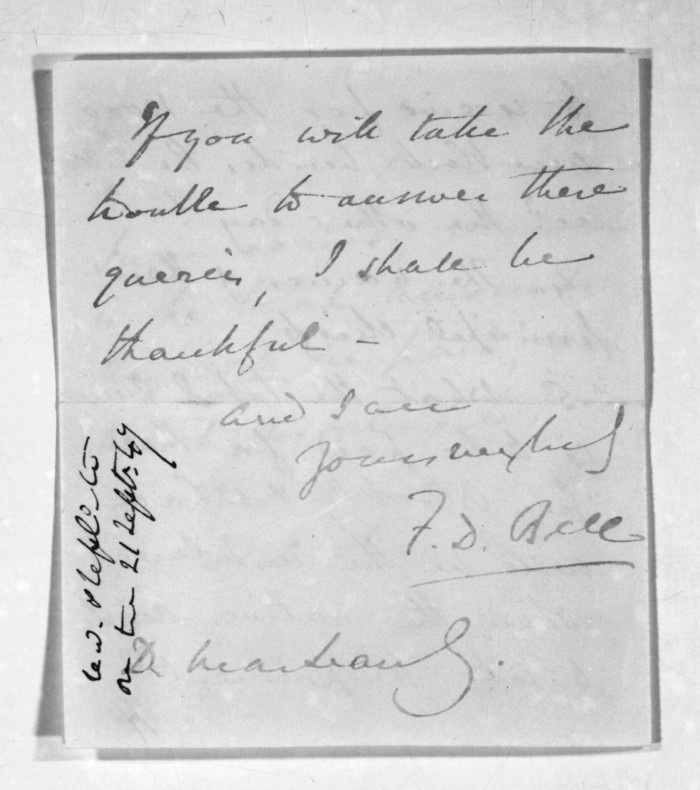 If you will take the
trouble to answer these
queries, I shall be
thankful -
and I am
Yours very truly
F. D. Bell
D. McLean Esq.
recd. & repld. to
on the 21 Septr. 47